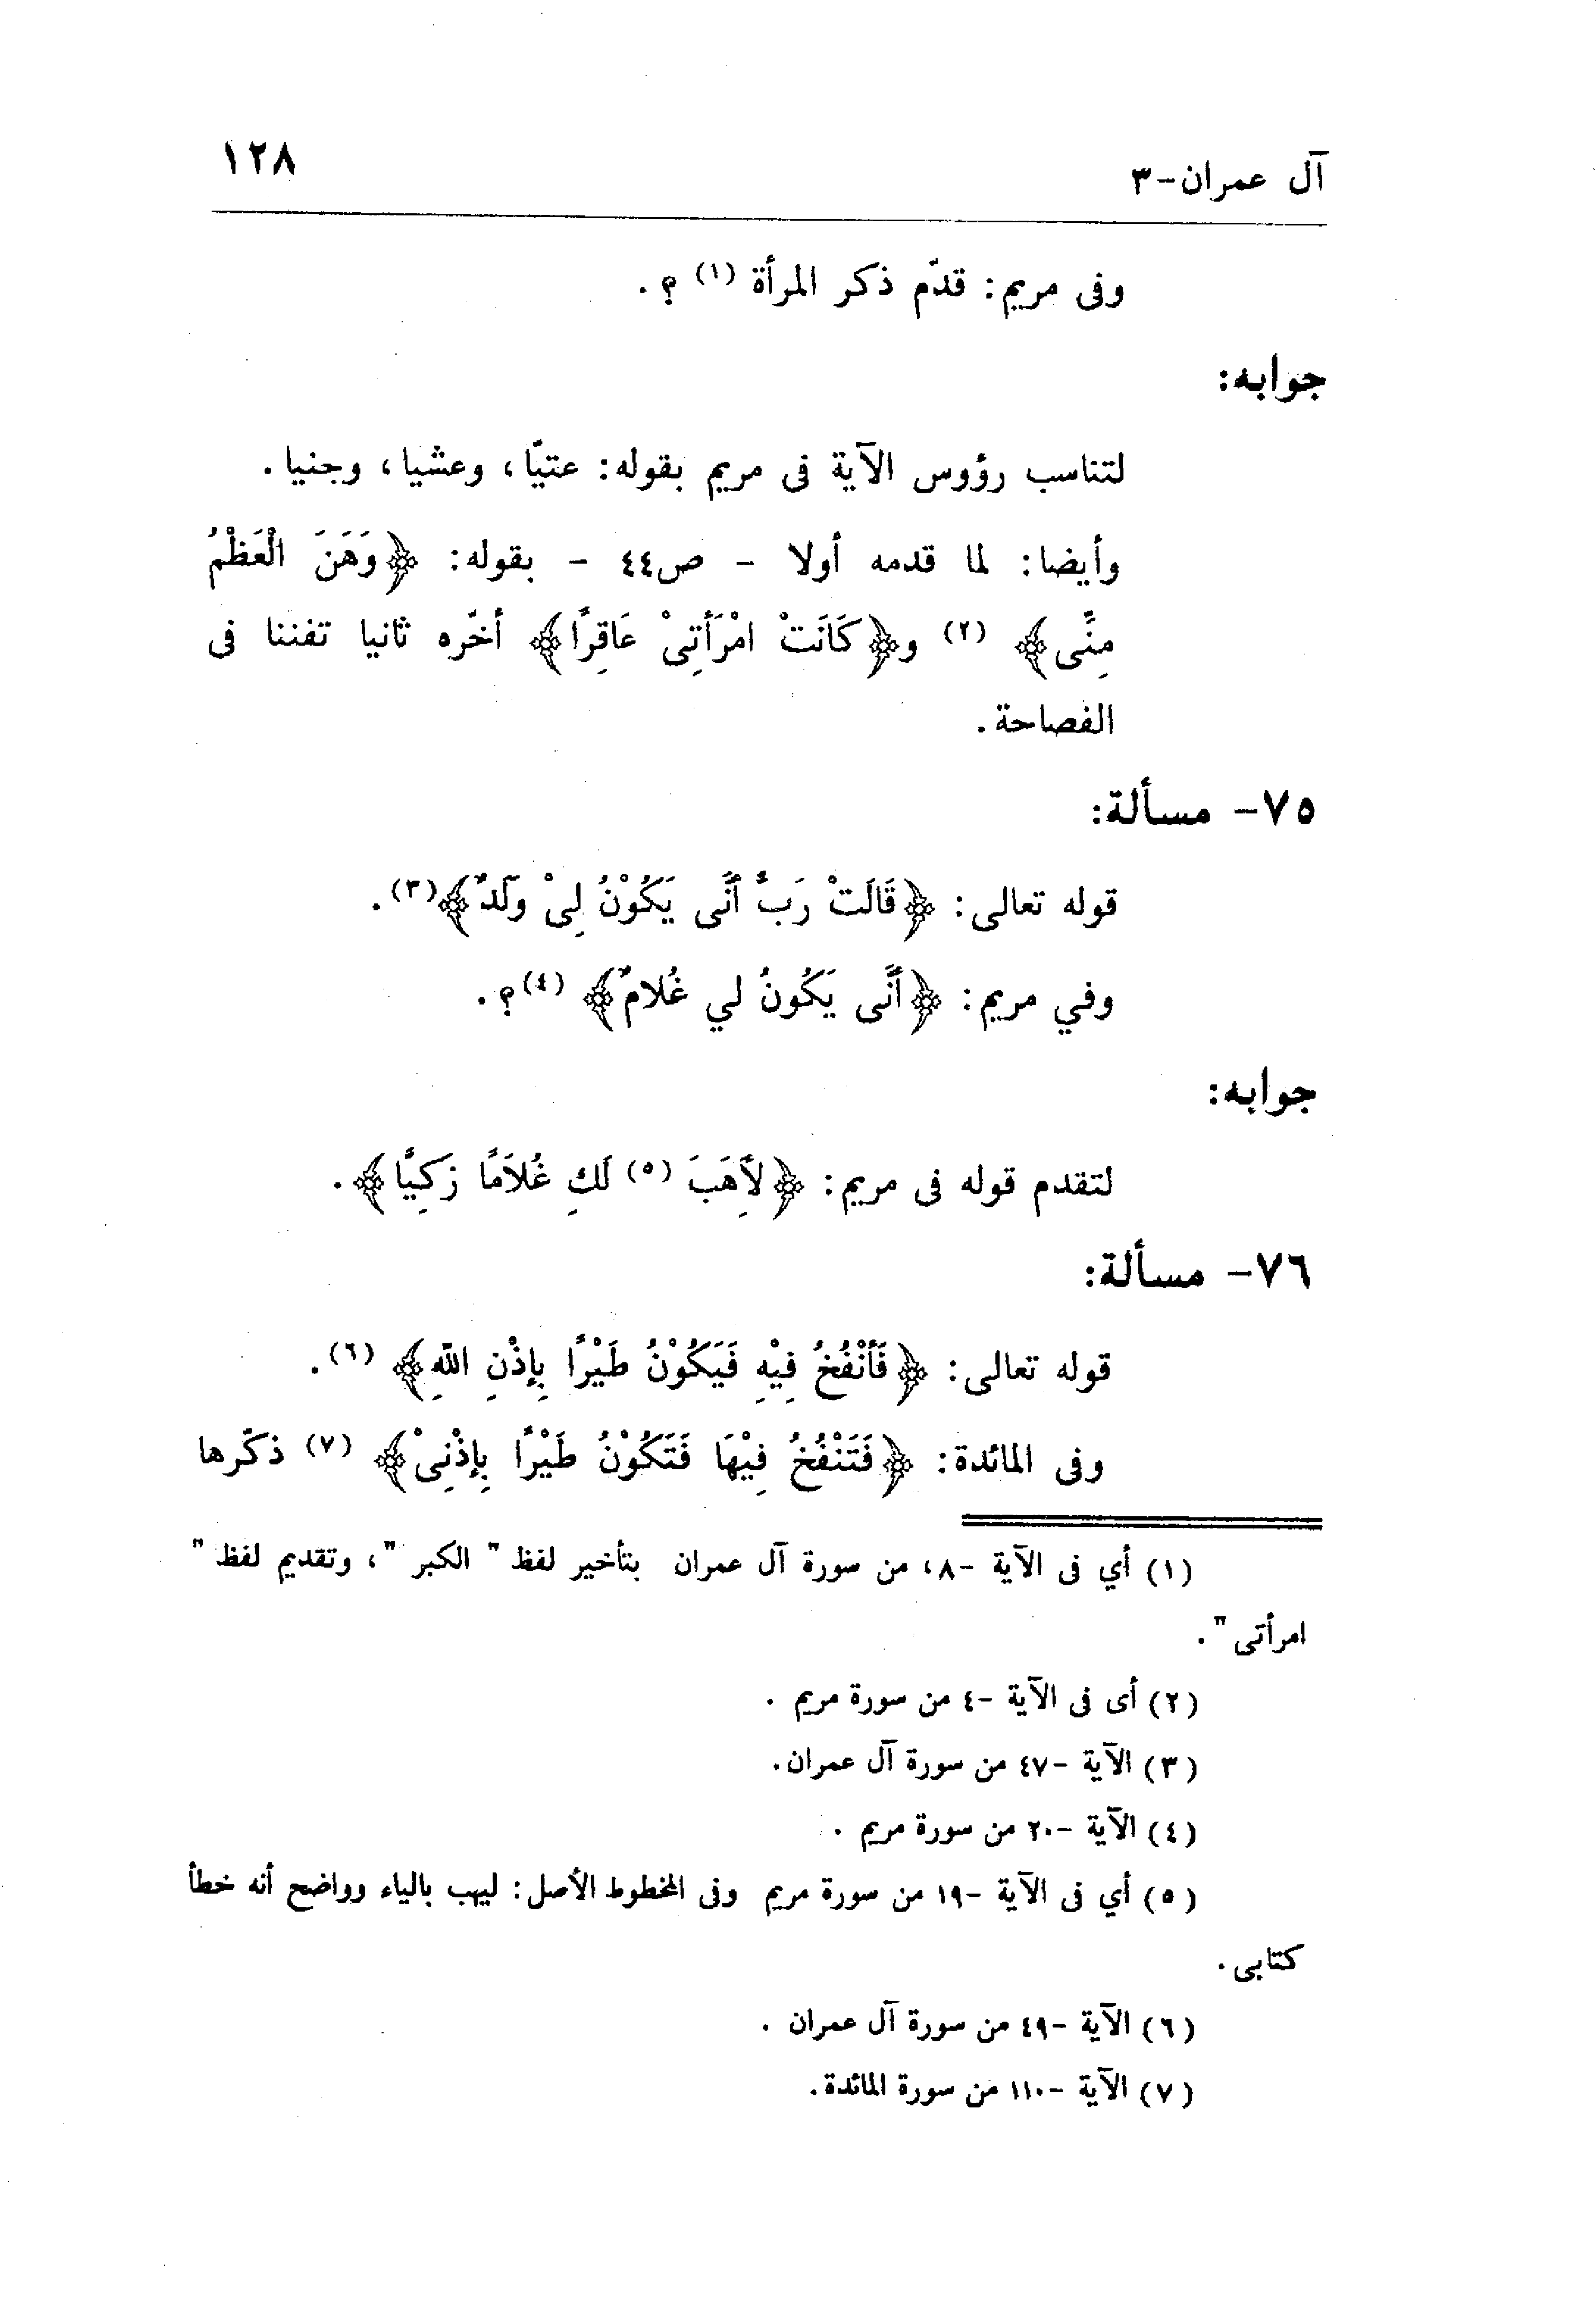 آل عمران-٣ ١٢٨
وفى مريم: قدّم ذكر المرأة (١) ؟ .
جوابه:
لتناسب رؤوس الآية فى مريم بقوله: عتيّا، وعشيا، وجنيا.
وأيضا: لما قدمه أولا - ص٤٤ - بقوله: ﴿وَهَنَ الْعَظْمُ
مِنِّى﴾ (٢) و﴿كَانَتْ امْرَأَتِىْ عَاقِرًا﴾ أخّره ثانيا تفننا فى
الفصاحة.
٧٥- مسألة:
قوله تعالى: ﴿قَالَتْ رَبُّ أَنَّى يَكُوْنُ لِىْ وَلَدٌ﴾(٣).
وفي مريم: ﴿أَنَّى يَكُونُ لي غُلامٌ﴾ (٤)؟.
جوابه:
لتقدم قوله فى مريم: ﴿لأَهَبَ (٥) لَكِ غُلاَمًا زَكِيًّا﴾.
٧٦- مسألة:
قوله تعالى: ﴿فَأَنْفُخُ فِيْهِ فَيَكُوْنُ طَيْرًا بِإِذْنِ اللهِ﴾ (٦).
وفى المائدة: ﴿فَتَنْفُخُ فِيْهَا فَتَكُوْنُ طَيْرًا بِإِذْنِىْ﴾ (٧) ذكّرها
(١) أي فى الآية -٨، من سورة آل عمران بتأخير لفظ " الكبر "، وتقديم لفظ "
امرأتى".
(٢) أى فى الآية -٤ من سورة مريم .
(٣) الآية -٤٧ من سورة آل عمران.
(٤) الآية -٢٠ من سورة مريم .
(٥) أي فى الآية -١٩ من سورة مريم وفى المخطوط الأصل: ليهب بالياء وواضح أنه خطأ
كتابى.
(٦) الآية -٤٩ من سورة آل عمران .
(٧) الآية -١١٠ من سورة المائدة.